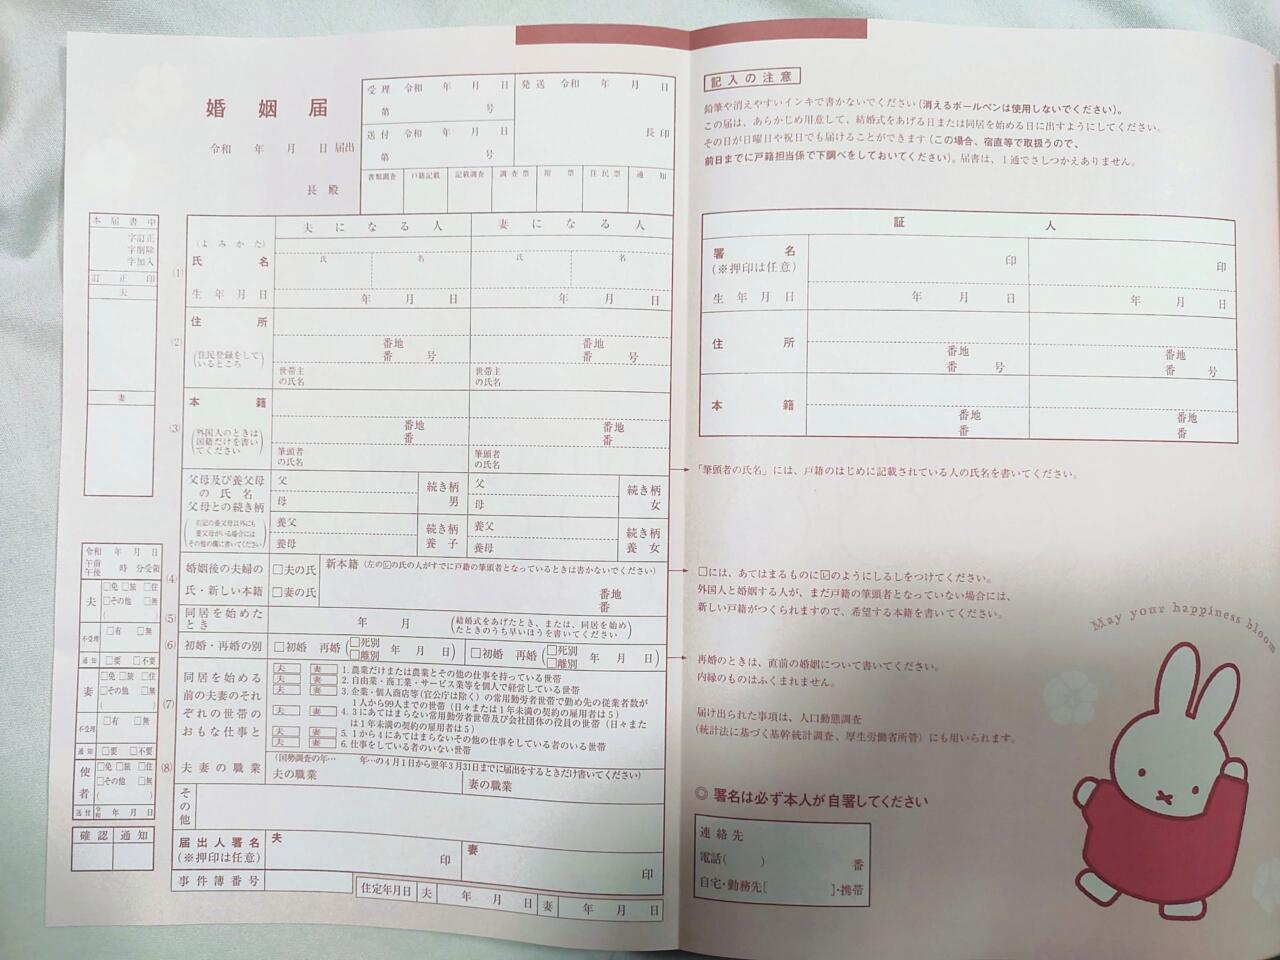 婚姻届
令和 年 月 日 届出
長 殿
受理 令和 年 月 日
第 号
送付 令和 年 月 日
第 号
発送 令和 年 月 日
長印
書類調査 戸籍記載 記載調査 調査票 附票 住民票 通知
本届書中
字訂正
字削除
字加入
訂正印
夫
妻
夫になる人 妻になる人
(1)
(よみかた)
氏名
氏 名 氏 名
生年月日
年 月 日 年 月 日
(2)
住所
(住民登録をしているところ)
番地 番地
番 号 番 号
世帯主の氏名 世帯主の氏名
(3)
本籍
(外国人のときは国籍だけを書いてください)
番地 番地
番 番
筆頭者の氏名 筆頭者の氏名
父母及び養父母の氏名
父母との続き柄
(右記の養父母以外にも養父母がいる場合にはその他の欄に書いてください)
父 続き柄 父 続き柄
母 男 母 女
養父 続き柄 養父 続き柄
養母 養子 養母 養女
(4)
婚姻後の夫婦の氏・新しい本籍
□夫の氏
□妻の氏
新本籍(左の☑の氏の人がすでに戸籍の筆頭者となっているときは書かないでください)
番地
番
(5)
同居を始めたとき
年 月
(結婚式をあげたとき、または、同居を始めたときのうち早いほうを書いてください)
(6)
初婚・再婚の別
□初婚 再婚(□死別 □離別 年 月 日) □初婚 再婚(□死別 □離別 年 月 日)
(7)
同居を始める前の夫妻のそれぞれの世帯のおもな仕事と
夫 妻 1.農業だけまたは農業とその他の仕事を持っている世帯
夫 妻 2.自由業・商工業・サービス業等を個人で経営している世帯
夫 妻 3.企業・個人商店等(官公庁は除く)の常用勤労者世帯で勤め先の従業者数が
1人から99人までの世帯(日々または1年未満の契約の雇用者は5)
夫 妻 4.3にあてはまらない常用勤労者世帯及び会社団体の役員の世帯(日々また
は1年未満の契約の雇用者は5)
夫 妻 5.1から4にあてはまらないその他の仕事をしている者のいる世帯
夫 妻 6.仕事をしている者のいない世帯
(8)
夫妻の職業
(国勢調査の年… 年…の4月1日から翌年3月31日までに届出をするときだけ書いてください)
夫の職業 妻の職業
その他
届出人署名
(※押印は任意)
夫 印 妻 印
事件簿番号
住定年月日 夫 年 月 日 妻 年 月 日
令和 年 月 日
午前
午後 時 分受領
夫
□免 □旅 □住
□その他 □無
( )
不受理 □有 □無
通知 □要 □不要
妻
□免 □旅 □住
□その他 □無
( )
不受理 □有 □無
通知 □要 □不要
使者
□免 □旅 □住
□その他 □無
( )
送付 令和 年 月 日
確認 通知
記入の注意
鉛筆や消えやすいインキで書かないでください(消えるボールペンは使用しないでください)。
この届は、あらかじめ用意して、結婚式をあげる日または同居を始める日に出すようにしてください。
その日が日曜日や祝日でも届けることができます(この場合、宿直等で取扱うので、
前日までに戸籍担当係で下調べをしておいてください)。届書は、1通でさしつかえありません。
証人
署名
(※押印は任意)
印 印
生年月日
年 月 日 年 月 日
住所
番地 番地
番 号 番 号
本籍
番地 番地
番 番
「筆頭者の氏名」には、戸籍のはじめに記載されている人の氏名を書いてください。
□には、あてはまるものに☑のようにしるしをつけてください。
外国人と婚姻する人が、まだ戸籍の筆頭者となっていない場合には、
新しい戸籍がつくられますので、希望する本籍を書いてください。
再婚のときは、直前の婚姻について書いてください。
内縁のものはふくまれません。
届け出られた事項は、人口動態調査
(統計法に基づく基幹統計調査、厚生労働省所管)にも用いられます。
◎ 署名は必ず本人が自署してください
連絡先
電話( ) 番
自宅・勤務先[ ]・携帯
May your happiness bloom